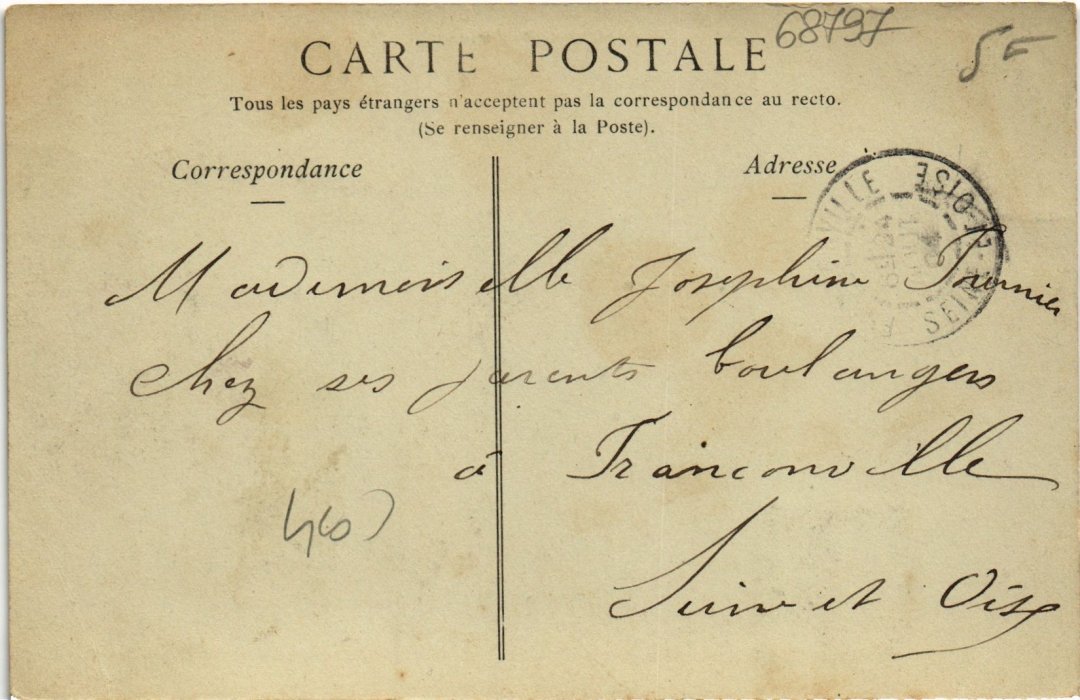 68797
5F
CARTE POSTALE
Tous les pays étrangers n'acceptent pas la correspondance au recto.
(Se renseigner à la Poste).
Correspondance
Adresse
VILLE SEINE-ET-OISE
Mademoiselle Josephine Fournier
chez ses parents boulangers
à Franconville
Seine et Oise